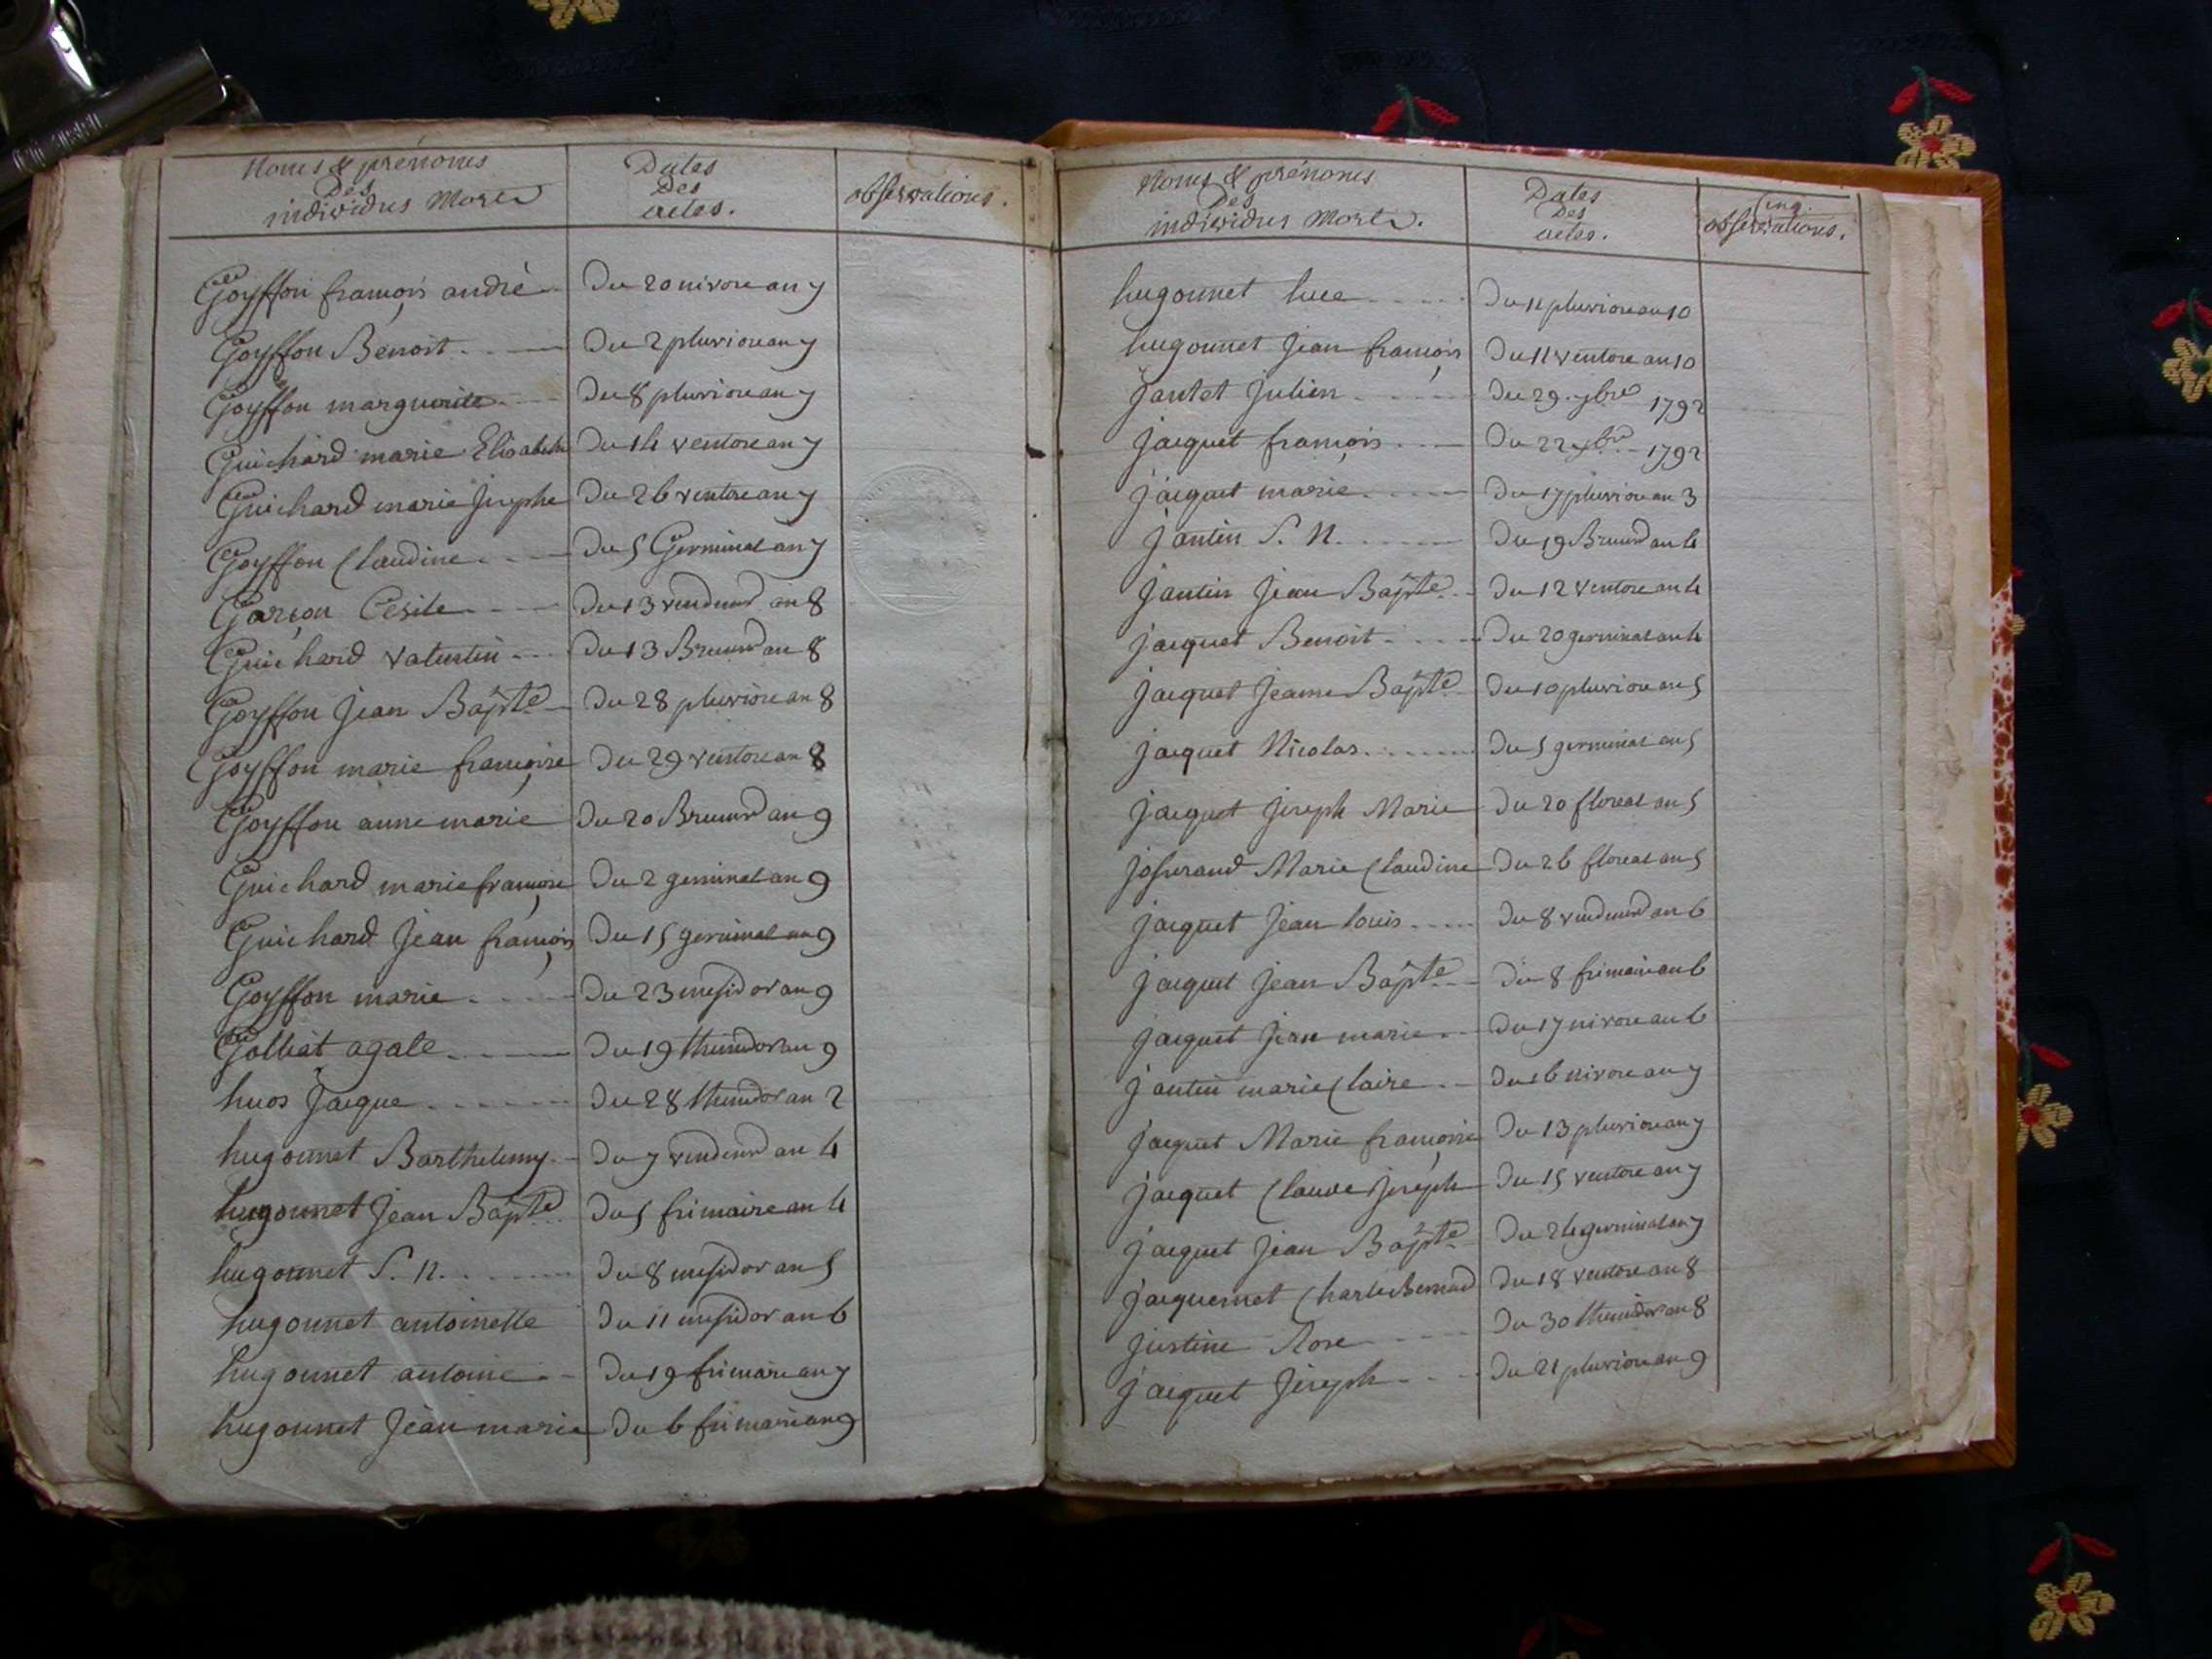 Noms & prénoms
Des
individus Morts
Dates
Des
actes.
observations.
Goyffon françois andré Du 20 nivose an 7
Goyffon Benoit Du 2 pluviose an 7
Goyffon marguerite Du 8 pluviose an 7
Guichard marie Elisabeth Du 14 ventose an 7
Guichard marie Josephe Du 26 ventose an 7
Goyffon Claudine Du 5 Germinal an 7
Garçon Cesile Du 13 vendemre an 8
Guichard Valentin Du 13 Brumre an 8
Goyffon Jean Bapte Du 28 pluviose an 8
Goyffon marie françoise Du 29 ventose an 8
Goyffon anne marie Du 20 Brumre an 9
Guichard marie françoise Du 2 germinal an 9
Guichard Jean françois Du 15 germinal an 9
Goyffon marie Du 23 messidor an 9
Golliat agate Du 19 thermidor an 9
huos Jacque Du 28 thermidor an 2
hugonnet Barthelemy Du 7 vendemre an 4
hugonnet Jean Bapte Du 5 frimaire an 4
hugonnet S. n. Du 8 messidor an 5
hugonnet antoinette Du 11 messidor an 6
hugonnet antoine Du 19 frimaire an 7
hugonnet Jean marie Du 6 frimaire an 9
Noms & prénoms
Des
individus Morts.
Dates
Des
actes.
cinq.
observations.
hugonnet luce Du 11 pluviose an 10
hugonnet Jean françois Du 11 ventose an 10
jantet Julien Du 29 7bre 1792
jacquet françois Du 22 1792
jacquet marie Du 17 pluviose an 3
jantin S. N. Du 19 Brumre an 4
jantin Jean Bapte Du 12 ventose an 4
jacquet Benoit Du 20 germinal an 4
jacquet Jeanne Bapte Du 10 pluviose an 5
jacquet Nicolas Du 5 germinal an 5
jacquet Joseph Marie Du 20 floreal an 5
josserand Marie Claudine Du 26 floreal an 5
jacquet Jean louis Du 8 vendemre an 6
jacquet Jean Bapte Du 8 frimaire an 6
jacquet Jean marie Du 17 nivose an 6
jantin marie Claire Du 16 nivose an 7
jacquet Marie françoise Du 13 pluviose an 7
jacquet Claude Joseph Du 15 ventose an 7
jacquet Jean Bapte Du 24 germinal an 7
jacquemet Charle Bernard Du 18 ventose an 8
justine Rose Du 30 thermidor an 8
jacquet Joseph Du 21 pluviose an 9